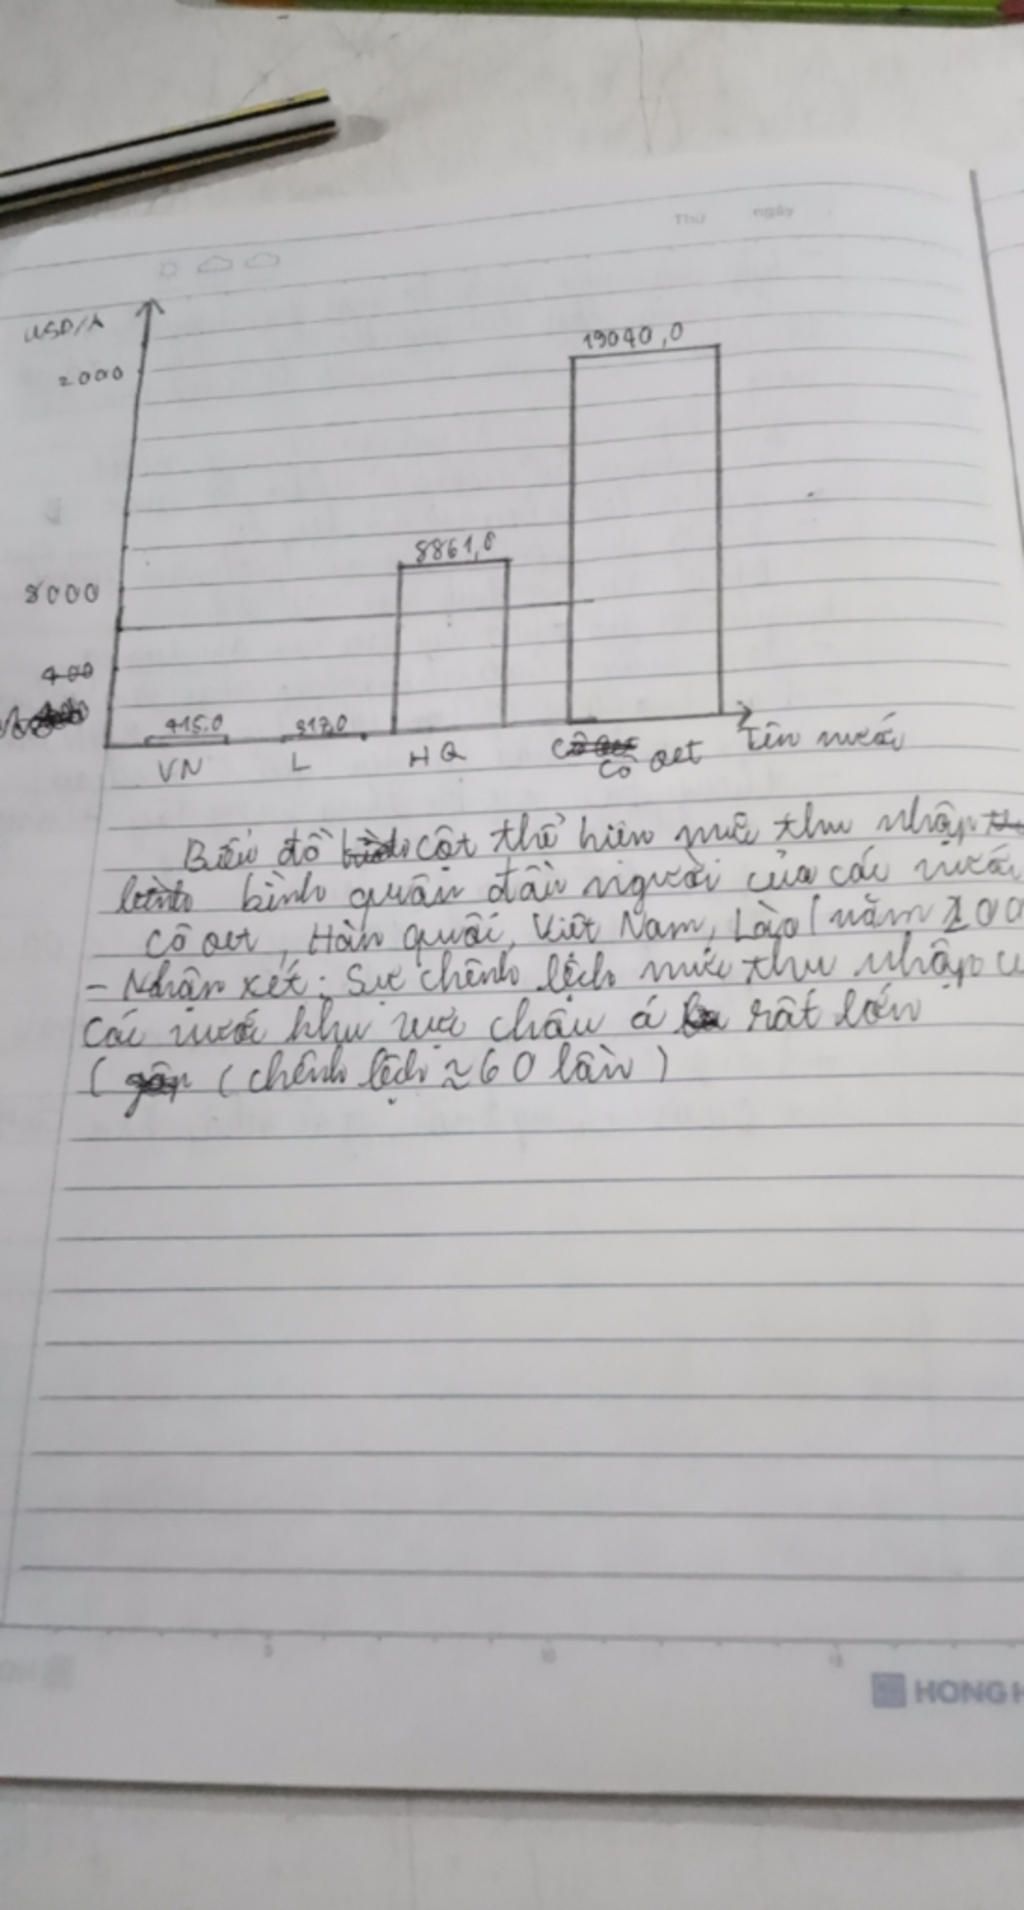 Thứ ngày
USD/
2000
19040,0
8861,0
8000
400
415.0
317,0
VN
L
HQ
Cô oet
Tên nước
Biểu đồ cột thể hiện mức thu nhập
bình quân đầu người của các nước
Cô oet, Hàn quốc, Việt Nam, Lào (năm 200
- Nhận xét: Sự chênh lệch mức thu nhập
các nước khu vực châu á rất lớn
( (chênh lệch ≈ 60 lần)
5
10
15
HONG H